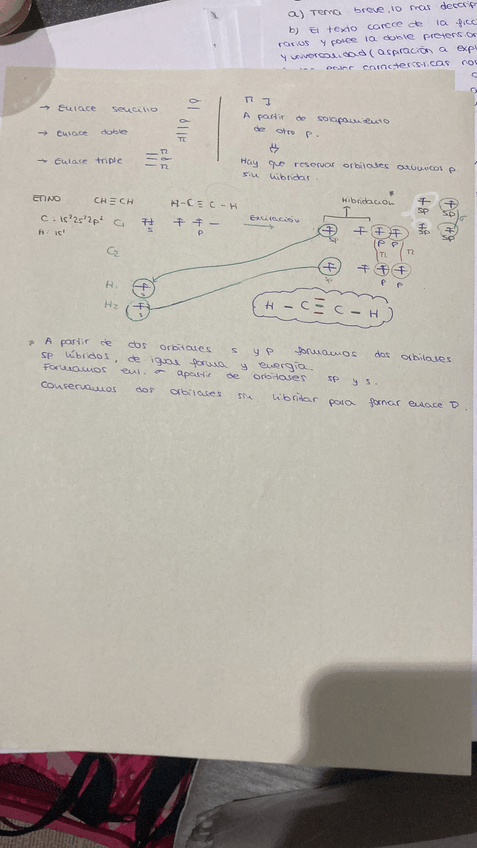 a) Tema breve, lo más
b) El texto carece de la
rarios y posee la doble
y universalidad (aspiración a
→ Enlace sencillo σ
→ Enlace doble σ π
→ Enlace triple π σ π
π ]
A partir de solapamiento
de otro p.
⇓
Hay que reservar orbitales atómicos p
sin hibridar.
ETINO CH≡CH H-C≡C-H
C: 1s² 2s² 2p² C₁ s p Excitación → Hibridación* sp p p sp sp σ
H: 1s¹ sp sp
C₂ π π
sp p p
H₁ s
H₂ s
H – C ≡ C – H
* A partir de dos orbitales s y p formamos dos orbitales
sp híbridos, de igual forma y energía.
Formamos enl. σ apartir de orbitales sp y s.
Conservamos dos orbitales sin hibridar para formar enlace π.